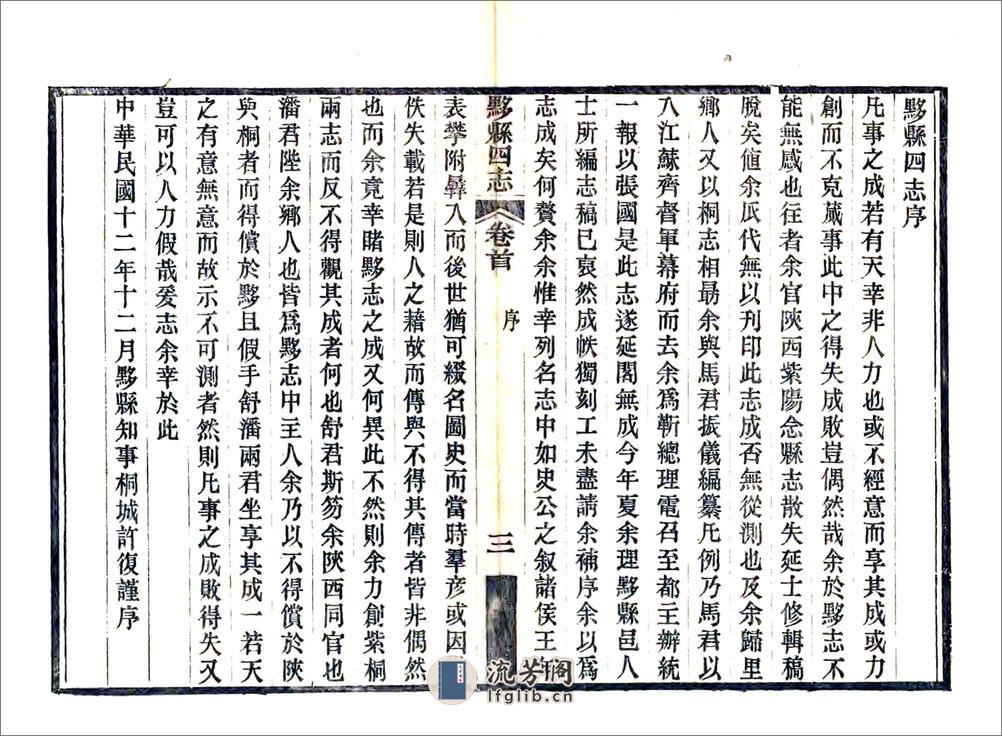 黟縣四志序
凡事之成若有天幸非人力也或不經意而享其成或力
創而不克蕆事此中之得失成敗豈偶然哉余於黟志不
能無感也往者余官陝西紫陽念縣志散失延士修輯稿
脫矣値余瓜代無以刋印此志成否無從測也及余歸里
鄉人又以桐志相勗余與馬君振儀編纂凡例乃馬君以
入江蘇齊督軍幕府而去余爲靳總理電召至都主辦統
一報以張國是此志遂延閣無成今年夏余理黟縣邑人
士所編志稿已裒然成帙獨刻工未盡請余補序余以爲
志成矣何贅余余惟幸列名志中如史公之叙諸侯王
黟縣四志
卷首
序
三
表攀附彝入而後世猶可綴名圖史而當時羣彦或因
佚失載若是則人之藉故而傳與不得其傳者皆非偶然
也而余竟幸睹黟志之成又何異此不然則余力創紫桐
兩志而反不得觀其成者何也舒君斯笏余陝西同官也
潘君陛余鄉人也皆爲黟志中主人余乃以不得償於陝
與桐者而得償於黟且假手舒潘兩君坐享其成一若天
之有意無意而故示不可測者然則凡事之成敗得失又
豈可以人力假哉爰志余幸於此
中華民國十二年十二月黟縣知事桐城許復謹序
流芳閣
lfglib.cn